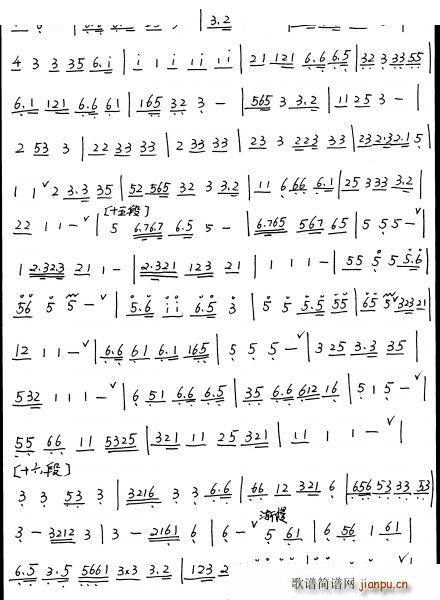 4 3 3 35 6.i | i i i i i i i | 21 121 6.6 6.5 | 32 3 33 55 |
6.1 121 6.6 61 | 165 32 3 – | 565 3 3.2 | 11 25 3 – |
2 53 3 | 22 33 33 | 2 33 33 | 23 3 223 33 | 232.32.1 5 |
1 1 ∨ 2 3.3 35 | 52 565 32 3 3.2 | 11 6 66 6.1 | 25 333 3.2 |
[十五段]
22 1 1 – ∨ | 5 6.767 6.5 5 – | 6.765 567 65 | 5 5 5 – ∨ |
1 2.32.3 21 1 – | 2.321 123 21 | 1 1 1 – | 55 5 5 5.6 |
56 5 5 – ∨ | 5.6 i i 6.5 3 | 5 5 5.5 55 | 65 5 ∨ 323 21 |
12 1 1 – ∨ | 6.6 61 6.1 165 | 5 5 5 – ∨ | 3 25 3.3 35 |
532 1 1 1 – ∨ | 6 51 6.6 6.5 | 35 6.6 612 16 | 5 1 5 – ∨ |
55 66 11 5325 | 321 11 25 321 | 11 1 1 – |
[十六段]
3 3 53 3 | 3216 3 3 6.6 | 66 12 321 6 | 656 53 33 53 |
渐慢
3 – 3212 3 | 3 – 2161 6 | 6 – ∨ 5 61 | 6 56 1 61 |
6.5 3.5 5661 3x3 3.2 | 123 2
歌谱简谱网
jianpu.cn